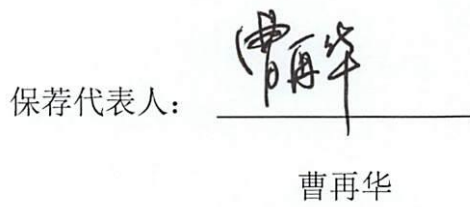 保荐代表人： 曹再华
曹再华